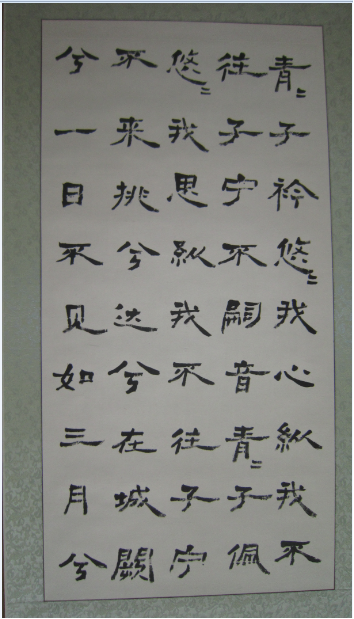 青〻子衿悠〻我心纵我不
往子宁不嗣音青〻子佩
悠〻我思纵我不往子宁
不来挑兮达兮在城阙
兮一日不见如三月兮